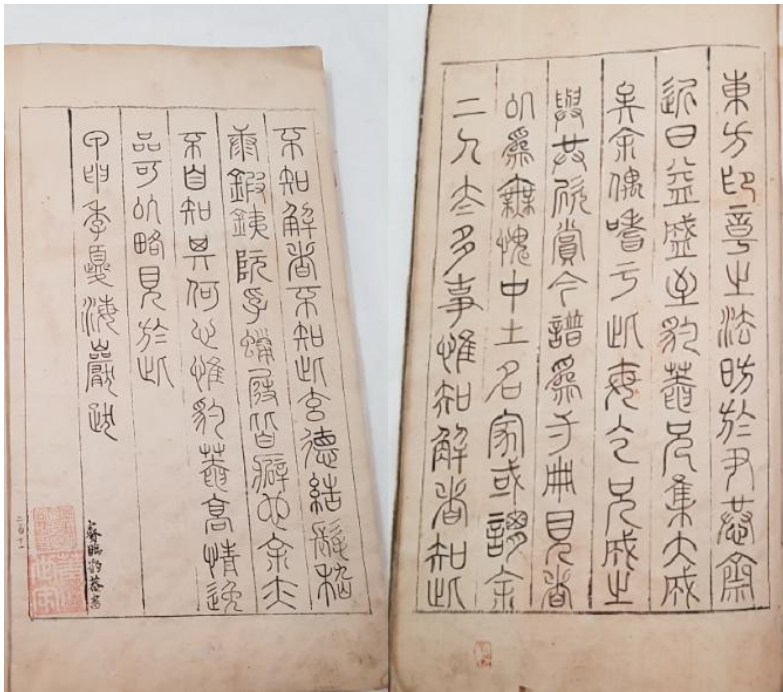 東方印章之法昉於尹恭齋
近日益盛至豹菴兄集大成
矣余偶嗜于此每令兄成之
與共欣賞今譜爲冊見者
以爲無愧中土名家或謂余
二人太多事惟知解者知此
不知解者不知此玄德結髦嵇
康鍛鐵阮孚蠟屐皆癖也余亦
不自知其何心惟豹菴高情逸
品可以略見於此
甲申季夏海巖跋
齋臨豹菴書
二百十一